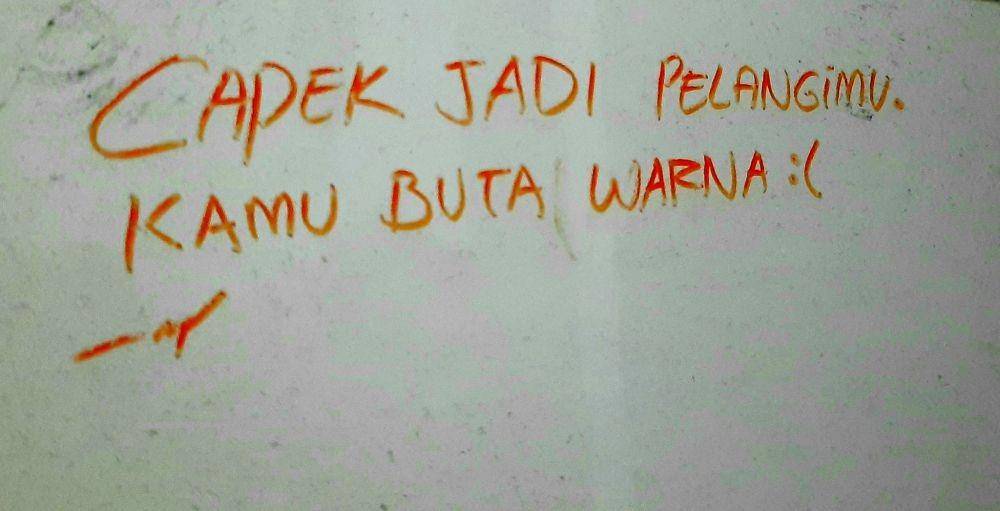 CAPEK JADI PELANGIMU.
KAMU BUTA WARNA :(